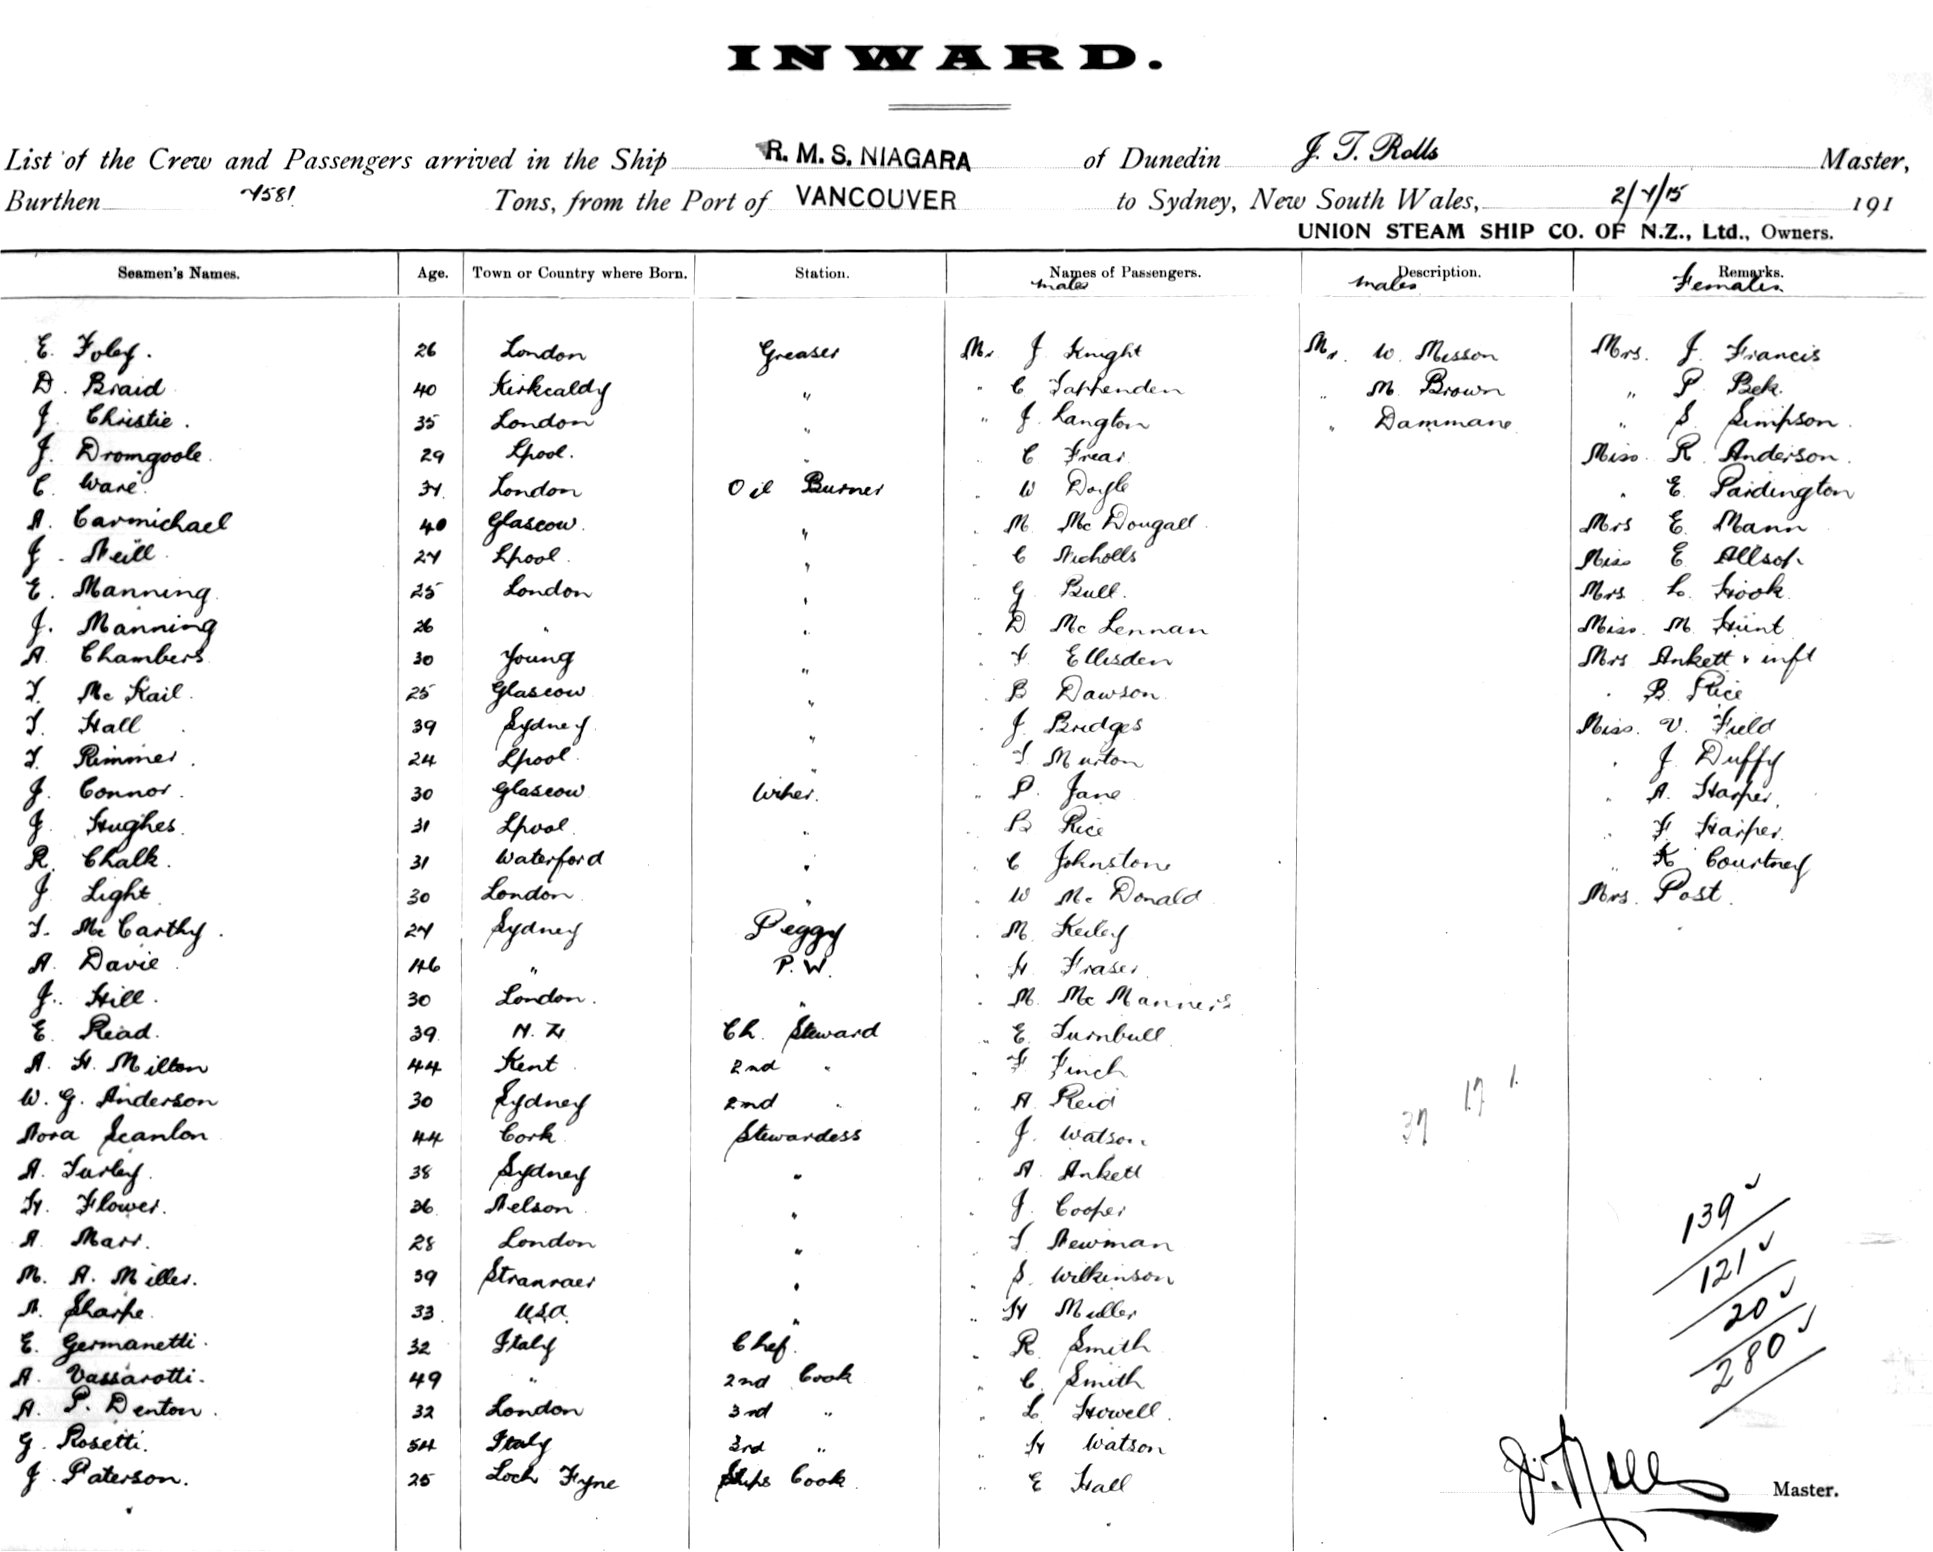 INWARD.
List of the Crew and Passengers arrived in the Ship R. M. S. NIAGARA of Dunedin J. T. Rolls Master,
Burthen 7581 Tons, from the Port of VANCOUVER to Sydney, New South Wales, 2/7/15 191
UNION STEAM SHIP CO. OF N.Z., Ltd., Owners.
Seamen's Names. Age. Town or Country where Born. Station. Names of Passengers. Description. Remarks.
males males Females
E. Foley. 26 London Greaser Mr J Knight Mr. W. Misson Mrs. J. Francis
D. Braid 40 Kirkcaldy " " C Tappenden " M Brown " P. Bek.
J. Christie. 35 London " " J. Langton " Dammane " S. Simpson.
J. Dromgoole. 29 Lpool. " C Frear Miss. R. Anderson.
C. Ware. 37. London Oil Burner " W Doyle " E. Pardington
A. Carmichael 40 Glascow. " " M. Mc Dougall. Mrs E. Mann
J. Neill 27 Lpool. " " C Nicholls Miss E Allsop.
E. Manning. 25 London " " G. Bull. Mrs L. Hook.
J. Manning 26 " " " D Mc Lennan Miss. M. Hunt
A. Chambers. 30 Young " " F Ellisden Mrs Ankett & inft
T. Mc Kail. 25 Glascow " " B Dawson. " B. Rice
T. Hall 39 Sydney. " " J. Bridges Miss. V. Field
T. Rimmer. 24 Lpool. " " T Murton " J. Duffy
J. Connor. 30 Glascow Wiper. " P. Jane " A. Harper.
J. Hughes. 31 Lpool. " " B Rice " F Harper.
R. Chalk. 31 Waterford " " C Johnstone " K. Courtney
J Light. 30 London. " " W Mc Donald Mrs. Post.
T. Mc Carthy. 27 Sydney Peggy " M. Keiley
A. Davie 46 " P. W. " H. Fraser.
J. Hill. 30 London. " " M. Mc Manners
E. Read. 39 N. Z. Ch. Steward " E. Turnbull
A. H. Milton 44 Kent 2nd " " F Finch
W. G. Anderson 30 Sydney 2nd " " A Reid
Nora Scanlon 44 Cork Stewardess " J. Watson.
A. Turley. 38 Sydney " " A. Ankett
H. Flower. 36 Nelson. " " J. Cooper
A. Marr. 28 London " " T Newman
M. A. Miller. 39 Stranraer " " S. Wilkinson
A. Sharpe. 33 USA. " " H Muller
E. Germanetti. 32 Italy Chef. " R. Smith
A. Vassarotti. 49 " 2nd Cook " C. Smith
A. P. Denton. 32 London 3rd " " L Howell.
G. Rosetti. 54 Italy 3rd " " H Watson
J. Paterson. 25 Loch Fyne Ships Cook. " E Hall
37 17 1.
139
121
20
280
J. T. Rolls Master.